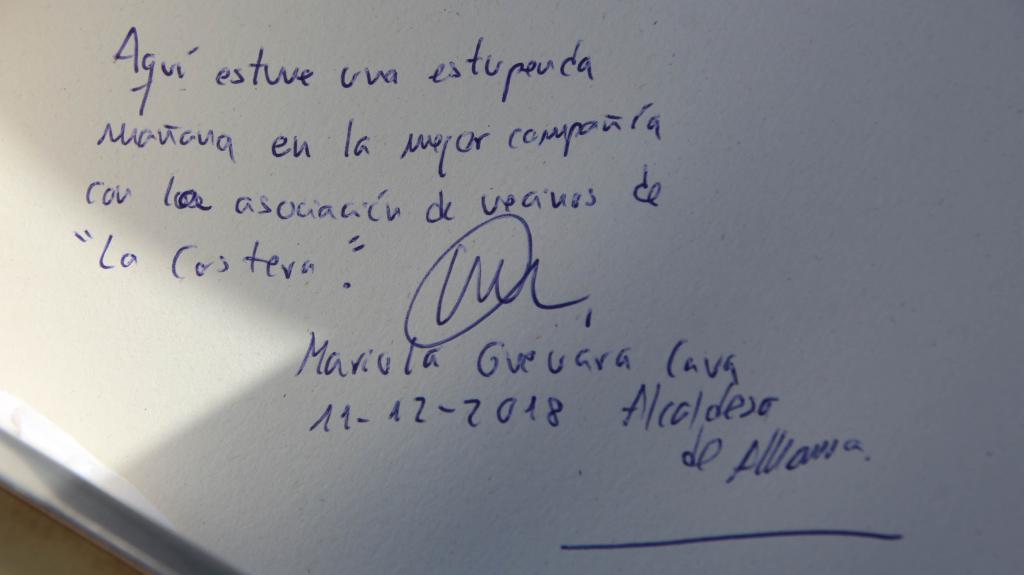 Aquí estuve una estupenda
mañana en la mejor compañía
con la asociación de vecinos de
"La Costera".
Mariola Guevara Cava
11-12-2018 Alcaldesa
de Almansa.